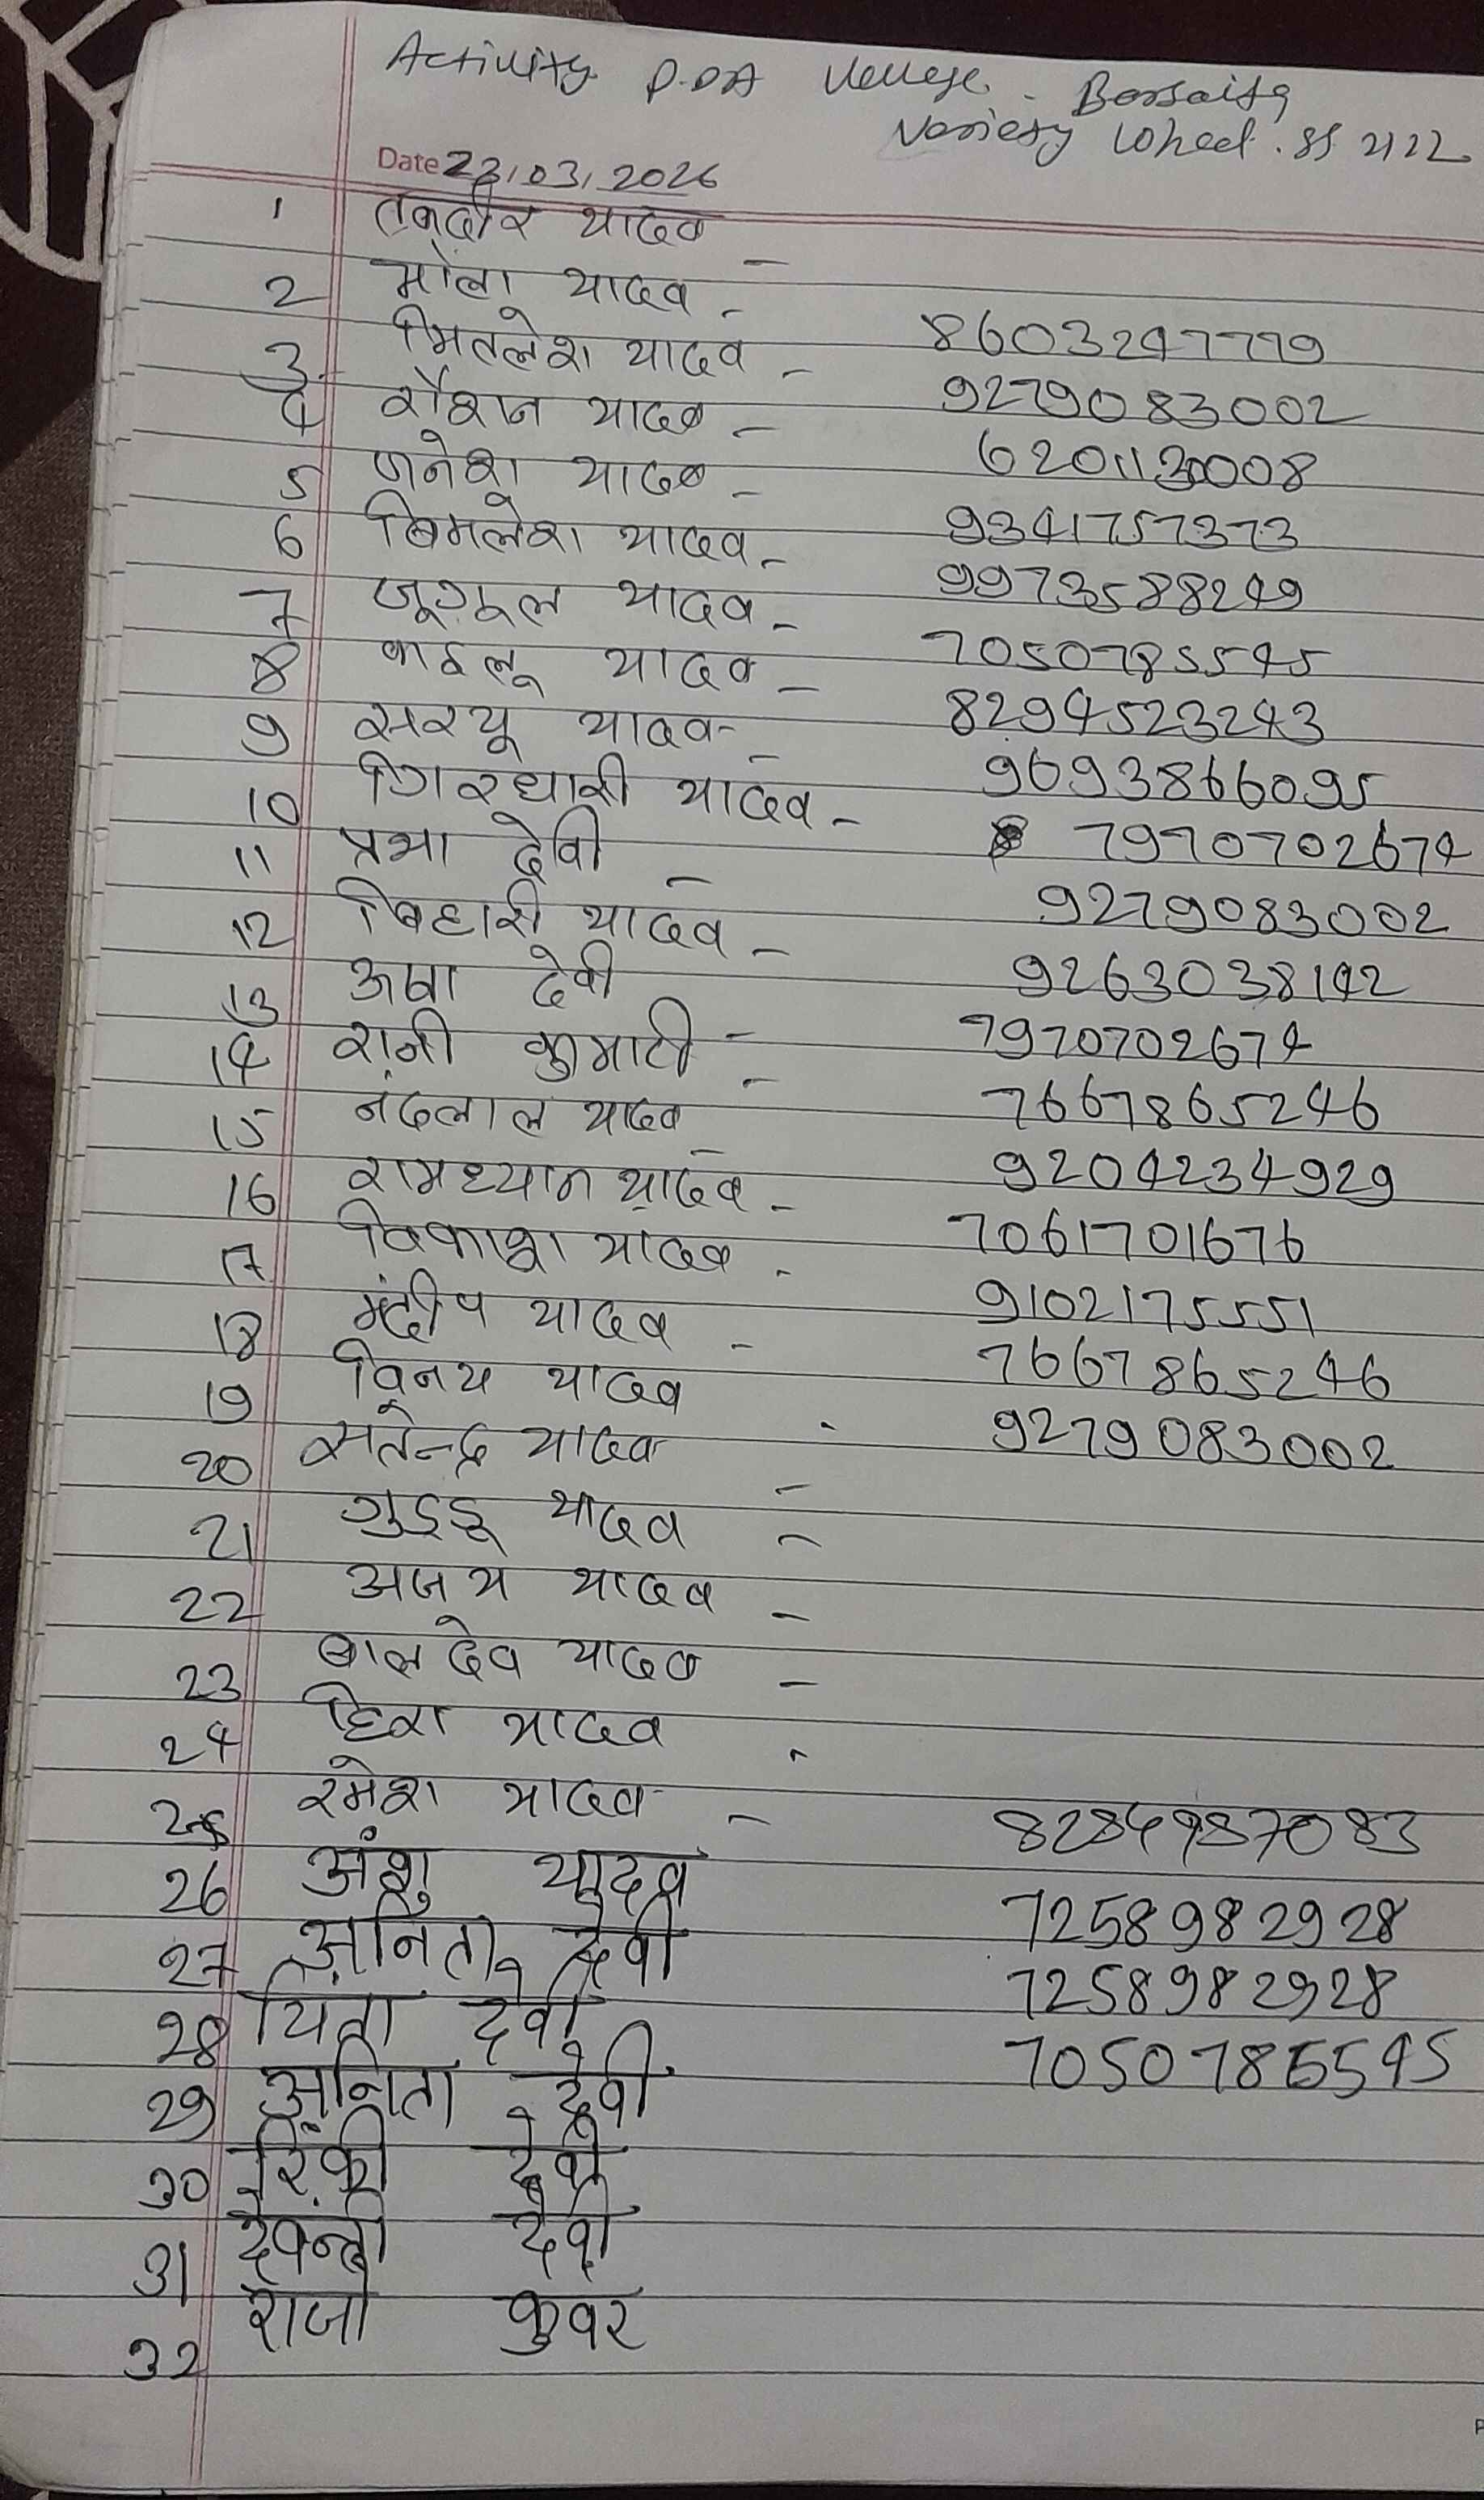 Activity P.DA Village - Barsaita
Variety Wheat. SS 2122
Date 23/03/2026
1 तकदीर यादव -
2 भोला यादव -
3 मितलेश यादव - 8603247779
4 रौशन यादव - 9279083002
5 गनेश यादव - 6201130008
6 बिमलेश यादव - 9341757373
7 जूगूल यादव - 9973588249
8 काइलू यादव - 7050785545
9 सरयू यादव - 8294523243
10 गिरधारी यादव - 9693866095
11 प्रभा देवी - 7970702674
12 बिहारी यादव - 9279083002
13 ऊषा देवी 9263038142
14 रानी कुमारी - 7970702674
15 नंदलाल यादव - 7667865246
16 रामध्यान यादव - 9204234929
17 विकाश यादव - 7061701676
18 मंदीप यादव - 9102175551
19 विनय यादव 7667865246
20 सतेन्द्र यादव - 9279083002
21 गुड्डू यादव -
22 अजय यादव -
23 बालदेव यादव -
24 हिरा यादव -
25 रमेश यादव - 8284987083
26 अंशु यादव 7258982928
27 अनिता देवी 7258982928
28 चिंता देवी 7050785545
29 अनिता देवी
30 रिंकी देवी
31 देवन्ती देवी
32 राजो कुवर